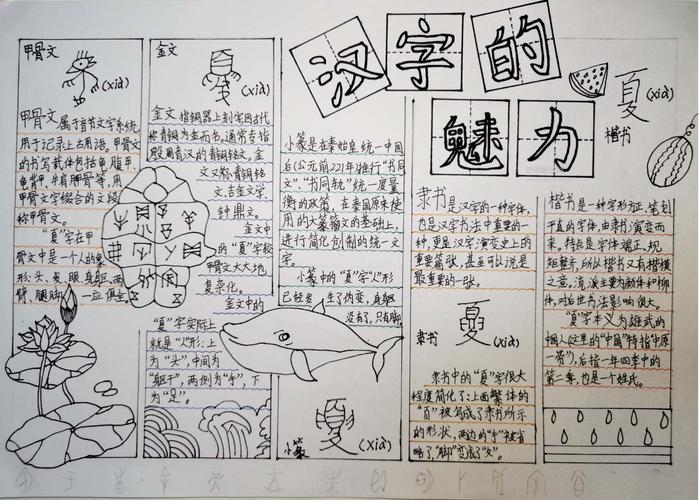 汉字的
魅力
甲骨文
(xià)
甲骨文属于音节文字系统,
用于记录上古用语,甲骨文
的书写载体包括龟腹甲
龟背甲,牛肩胛骨等,用
甲骨文字缀合的文段
称甲骨文。
"夏"字在甲
骨文中是一个人的象
形:头、发、眼、身躯、两
臂、腿脚、一应俱全
金文
(xià)
金文指铜器上刻字因古代
称青铜为金而名,通常专指
殷周青汉的青铜铭文,金
文又称青铜铭
文、吉金文字、
钟鼎文。
金文中
的"夏"字较
甲骨文大大地
复杂化。
金文中的
"夏"字实际上
就是"人"形:上
为"头",中间为
"躯干",两侧为"手",下
为"足"。
小篆是在秦始皇统一中国
后(公元前221年)推行"书同
文"、"书同轨"统一度量
衡的政策,在秦国原来使
用的大篆籀文的基础上,
进行简化创制的统一文
字。
小篆中的"夏"字"人"形
已经发生了伪变,身躯
没有了,只有脚。
小篆
夏
(xià)
隶书是汉字的一种字体,
也是汉字书法中重要的一
种,更是汉字演变史上的
重要篇张,甚至可以说是
最重要的一张。
隶书
夏
(xià)
隶书中的"夏"字很大
程度简化了:上面繁体的
"页"被写成了隶书所示
的形状,两边的"手"被省
略了,"脚"变成了"夂"。
夏
(xià)
楷书
楷书是一种字形方正,笔划
平直的字体,由隶书演变而
来,特点是字体端正、规
矩整齐,所以楷书又有楷模
之意,流派主要为颜体和柳
体,对后世书法影响很大。
"夏"字本义为雄武的
中国人(这里的"中国"特指"中原
一带"),后指一年四季中的
第二季,也是个姓氏。